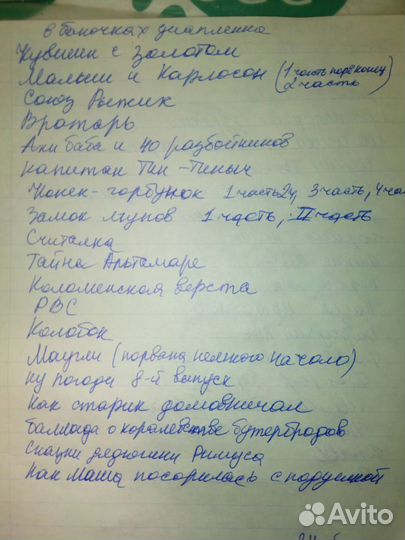 в баночках диапленка
Кувшин с золотом
Малыш и Карлосон (1 часть порв конец)
2 часть
Союз Рыжик
Вратарь
Али баба и 40 разбойников
капитан Пин-Пиныч
Конек-горбунок 1 часть 2ч, 3 часть, 4 час
Замок лгунов 1 часть, II часть
Считалка
Тайна Альтамаре
Коломенская верста
РВС
Колобок
Маугли (порвана немного начало)
ну погоди 8-й выпуск
как старик домовничал
баллада о королевстве бутербродов
Сказки дядюшки Римуса
как Маша поссорилась с подушкой
Avito